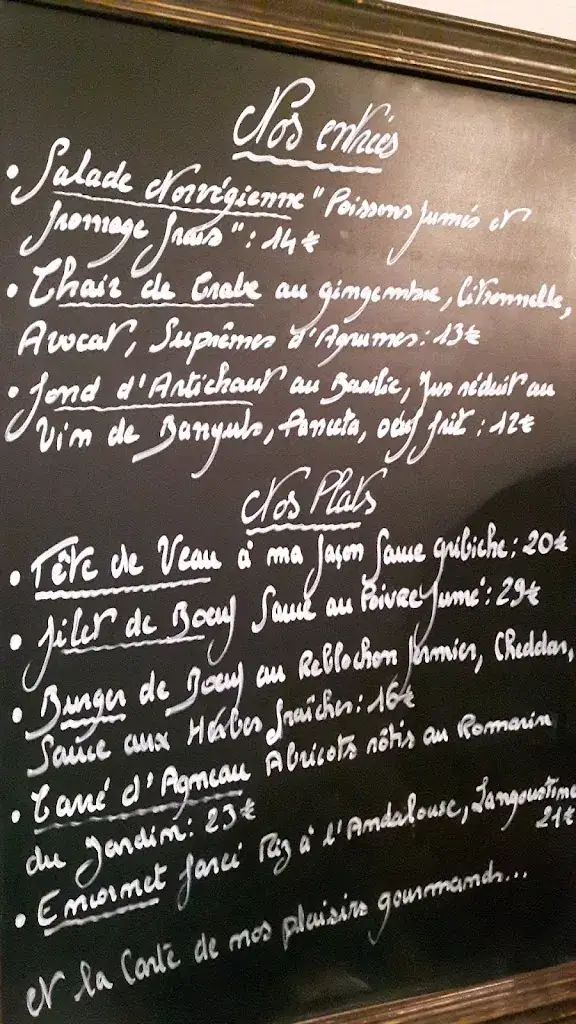 Nos entrées
• Salade Norvégienne "Poissons fumés et
fromage frais" : 14€
• Chair de Crabe au gingembre, Citronnelle,
Avocat, Suprêmes d'Agrumes : 13€
• fond d'Artichaut au Basilic, Jus réduit au
Vin de Banyuls, Panceta, oeuf frit : 12€
Nos Plats
• Tête de Veau à ma façon Sauce gribiche : 20€
• filet de Boeuf Sauce au Poivre fumé : 29€
• Burger de Boeuf au Reblochon fermier, Cheddar,
Sauce aux Herbes fraîches : 16€
• Carré d'Agneau Abricots rôtis au Romarin
du Jardin : 23€
• Encornet farci Riz à l'Andalouse, Langoustine
21€
et la Carte de mos plaisirs gourmands...